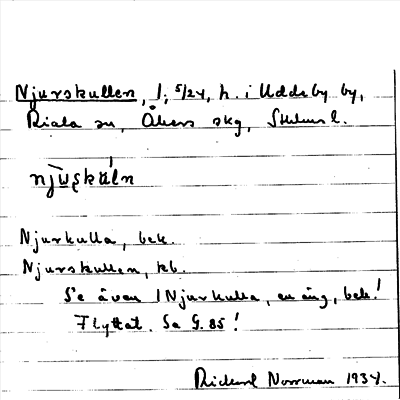 Njurskullen, 1; 5/24, h. i Uddeby by,
Riala sn, Åkers skg, Sthlms l.
Njurkulla, bek.
Njurskullen, kb.
Se även 1 Njurkulla, en äng, bek!
Flyttat. Se G. 85!
Rickard Norrman 1934.